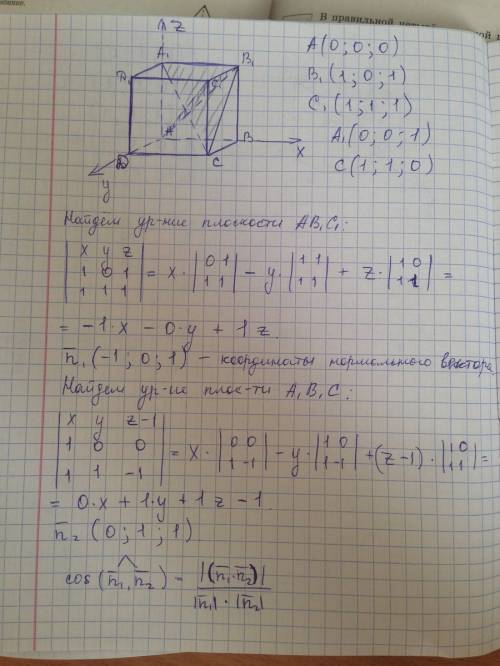 В правильной
Z
A₁
B₁
D₁
C₁
A
B
X
D
C
y
A(0;0;0)
B₁(1;0;1)
C₁(1;1;1)
A₁(0;0;1)
C(1;1;0)
Найдём ур-ние плоскости AB₁C₁:
|x y z; 1 0 1; 1 1 1| = x·|0 1; 1 1| − y·|1 1; 1 1| + z·|1 0; 1 1| =
= −1·x − 0·y + 1z.
n̅₁(−1;0;1) – координаты нормального вектора
Найдём ур-ие плос-ти A₁B₁C:
|x y z−1; 1 0 0; 1 1 −1| = x·|0 0; 1 −1| − y·|1 0; 1 −1| + (z−1)·|1 0; 1 1| =
= 0·x + 1·y + 1z − 1.
n̅₂(0;1;1)
cos(n̅₁,n̅₂) = |(n̅₁·n̅₂)| / |n̅₁|·|n̅₂|